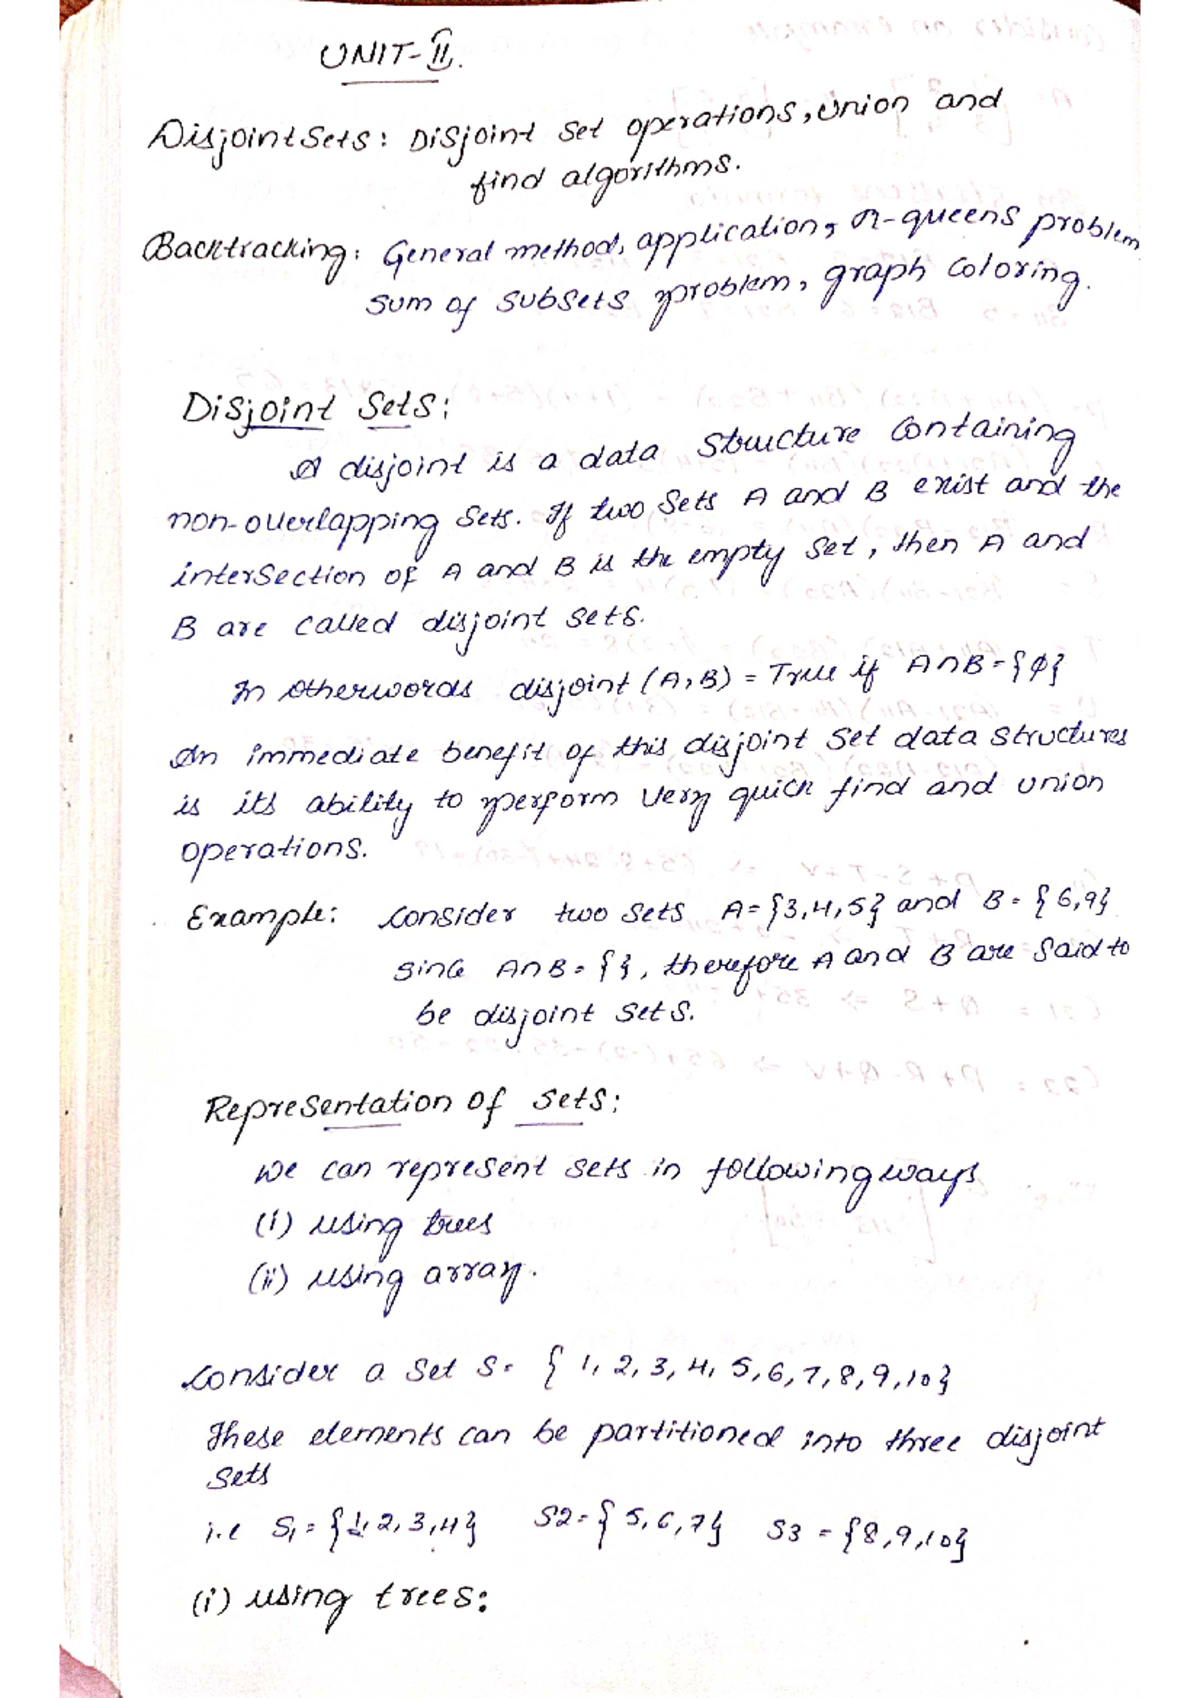 UNIT-II.
Disjoint Sets: Disjoint Set operations, union and
find algorithms.
Backtracking: General method, application, n-queens problem
sum of subsets problem, graph coloring.
Disjoint Sets:
A disjoint is a data structure containing
non-overlapping sets. If two sets A and B exist and the
intersection of A and B is the empty set, then A and
B are called disjoint sets.
In otherwords disjoint (A,B) = True if A∩B={ϕ}
An immediate benefit of this disjoint set data structures
is its ability to perform very quick find and union
operations.
Example: Consider two sets A={3,4,5} and B={6,9}
since A∩B={}, therefore A and B are said to
be disjoint sets.
Representation of sets:
we can represent sets in following ways
(i) using trees
(ii) using array.
Consider a set S= {1,2,3,4,5,6,7,8,9,10}
These elements can be partitioned into three disjoint
sets
i.e S1={1,2,3,4} S2={5,6,7} S3={8,9,10}
(i) using trees: